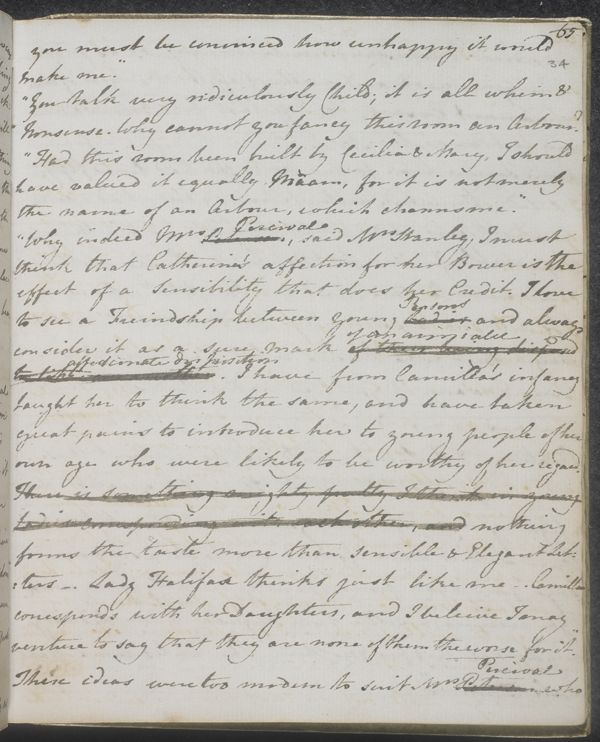 65
34
you must be convinced how unhappy it would
make me."
"You talk very ridiculously Child; it is all whim &
Nonsense. Why cannot you fancy this room an Arbour?
"Had this room been built by Cecilia & Mary, I should
have valued it equally Ma'am, for it is not merely
the name of an Arbour, which charms me."
"Why indeed Mrs Percival, said Mrs Stanley, I must
think that Catherine's affection for her Bower is the
effect of a Sensibility that does her Credit. I love
to see a Freindship between young Persons and always
consider it as a sure mark of an amiable
affectionate disposition. I have from Camilla's infancy
taught her to think the same, and have taken
great pains to introduce her to young people of her
own age who were likely to be worthy of her regard.
There is something mighty pretty I think in young
Ladies corresponding with each other, and nothing
forms the taste more than sensible & Elegant Let-
-ters -. Lady Halifax thinks just like me -. Camilla
corresponds with her Daughters, and I beleive I may
venture to say that they are none of them the worse for it."
These ideas were too modern to suit Mrs Percival who